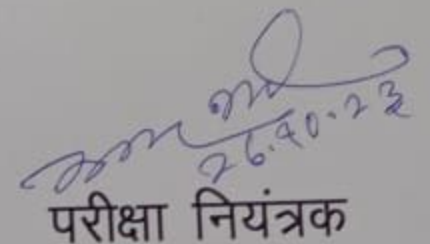 26.10.23
परीक्षा नियंत्रक